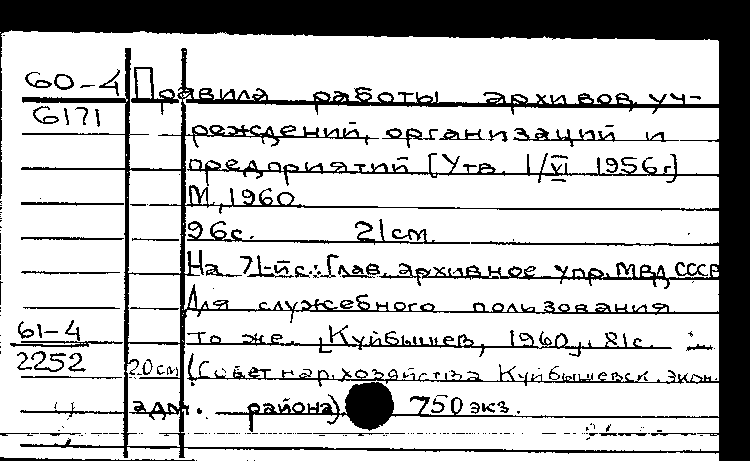 60-4 Правила работы архивов, уч-
6171 реждений, организаций и
предприятий [Утв. 1/VI 1956г.]
М., 1960.
96с. 21см.
На 71-й с.: Глав. архивное упр. МВД СССР
Для служебного пользования
61-4 То же. [Куйбышев, 1960], 81с.
2252 20см (Совет нар. хозяйства Куйбышевск. экон.
адм. района) 750 экз.